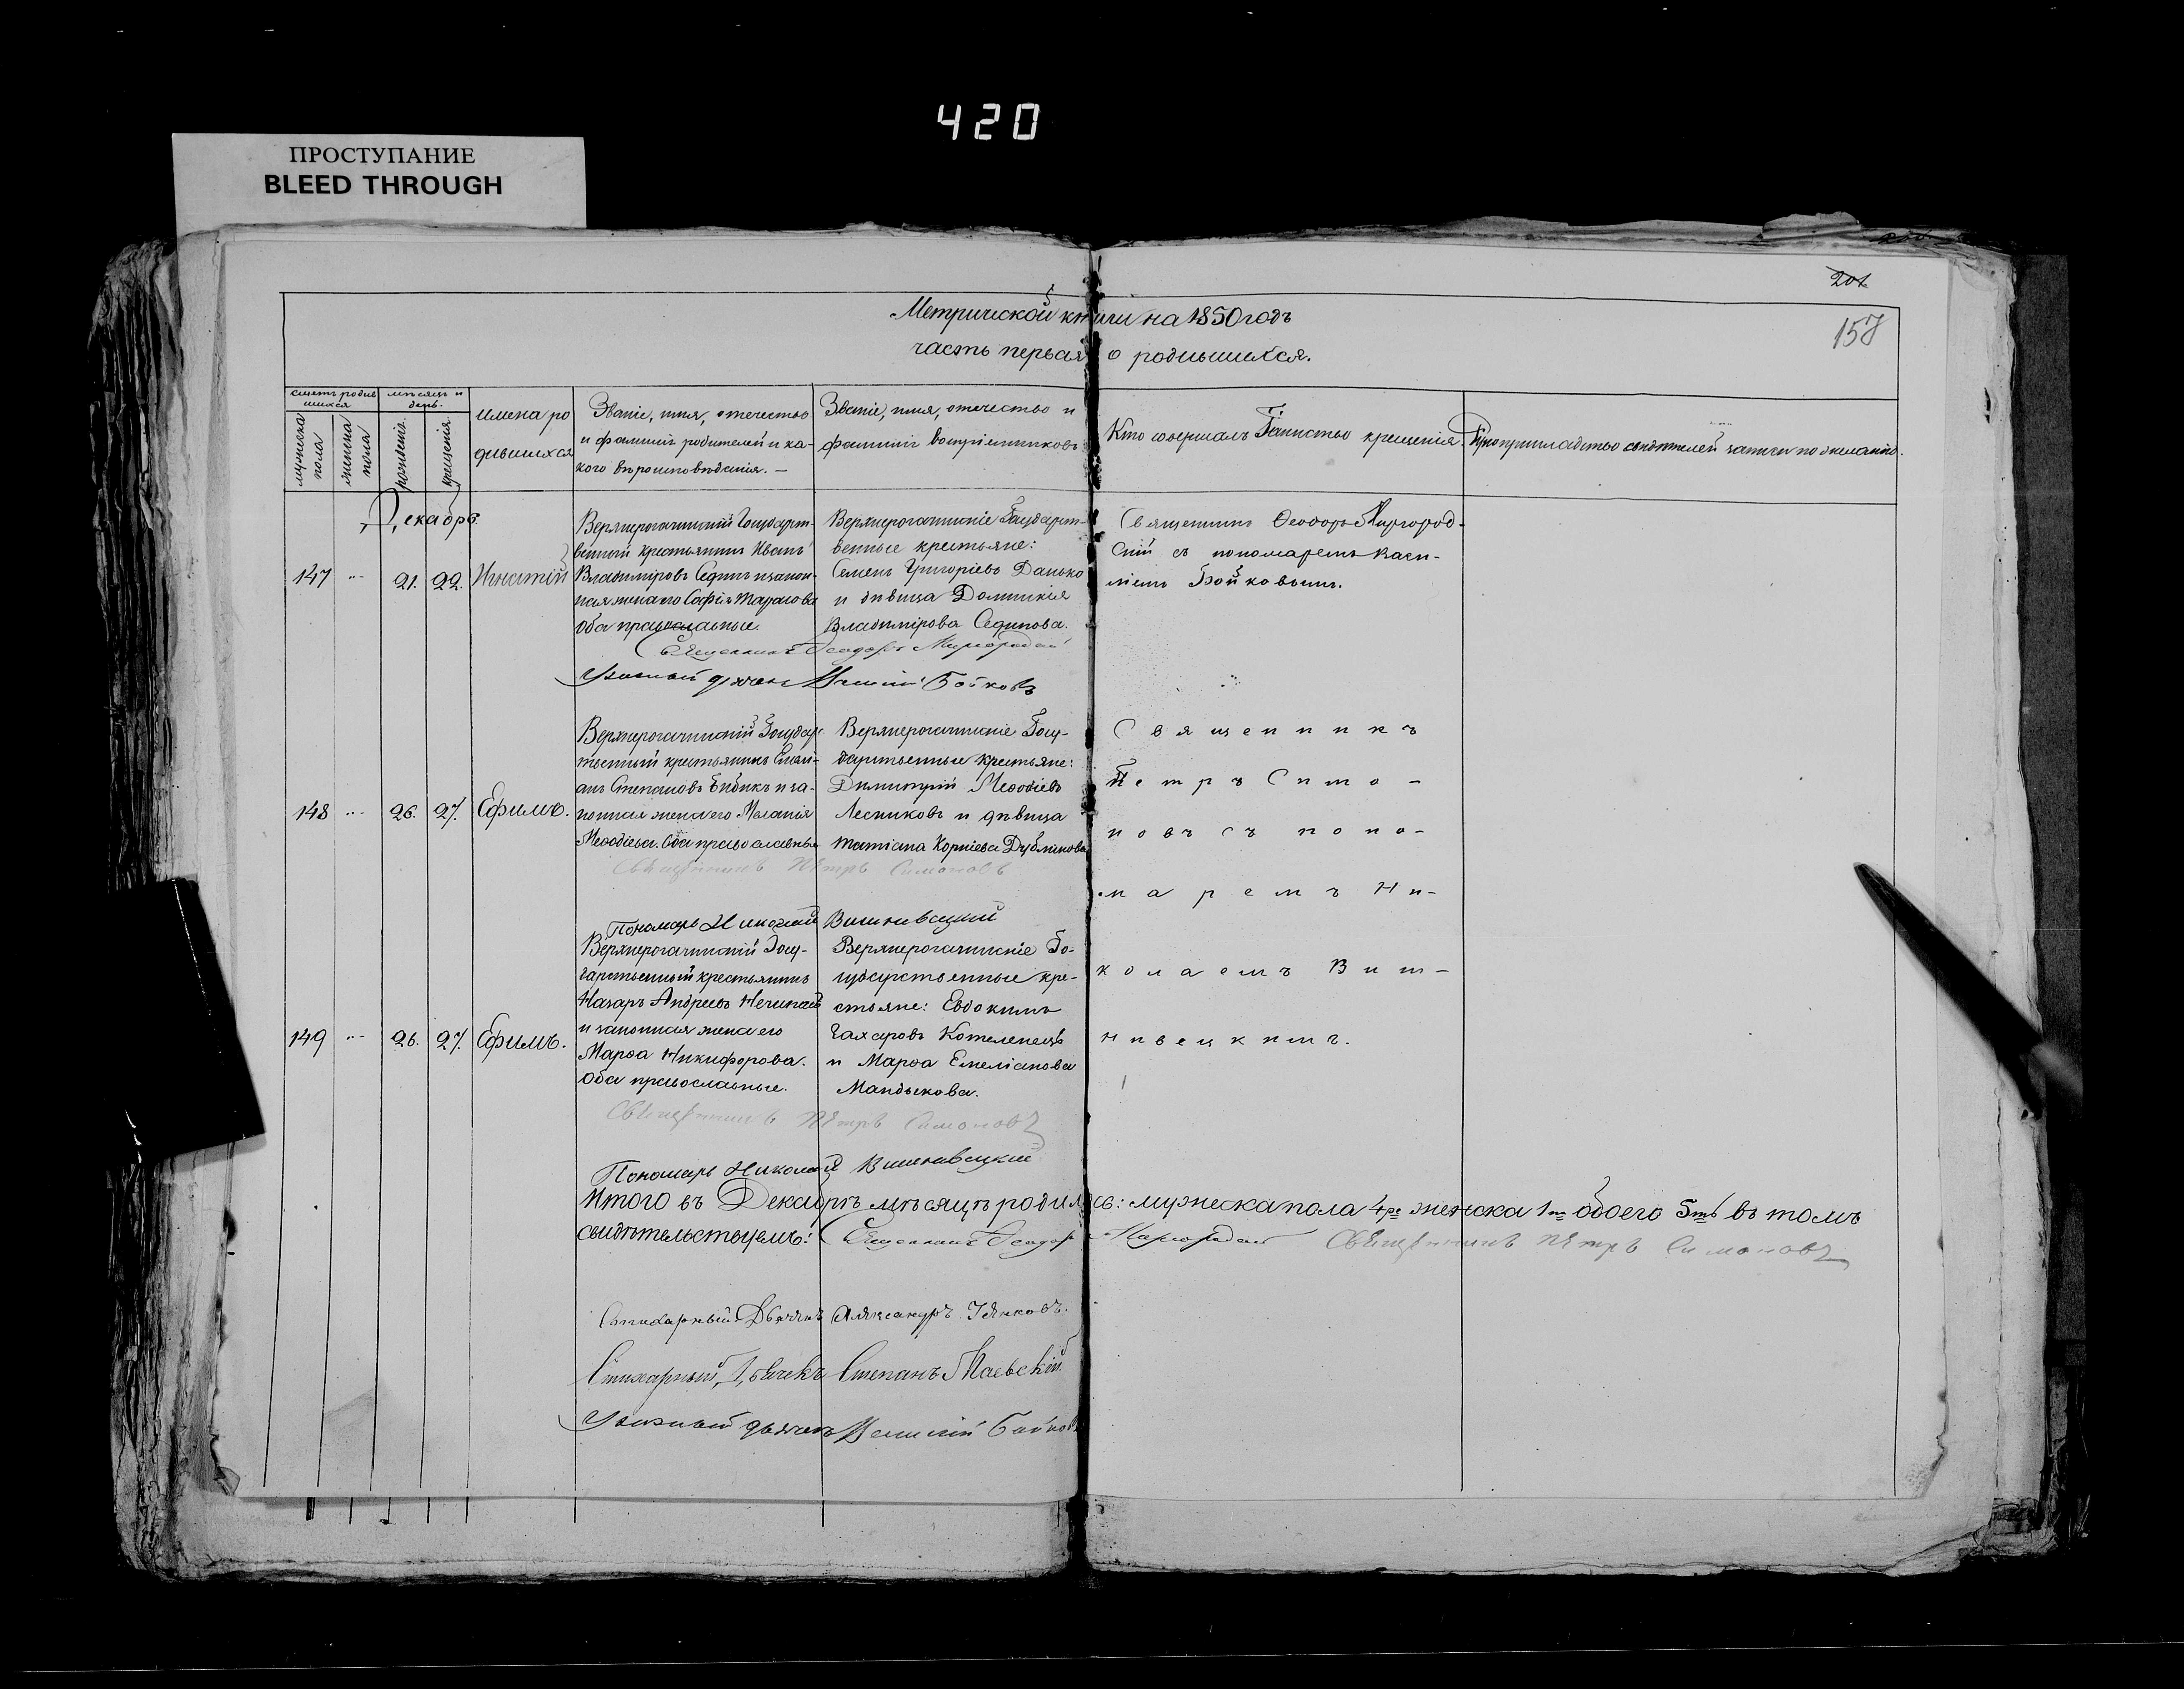 420
ПРОСТУПАНИЕ
BLEED THROUGH
201
157
Метрической книги на 1850 годъ
часть первая о родившихся.
счетъ родив
шихся
мѣсяцъ и
день.
мужеска
пола
женска
пола
рожденія.
крещенія.
имена ро
дившихся
Званіе, имя, отечество
и фамилія родителей и ка-
кого вѣроисповѣданія. —
Званіе, имя, отечество и
фамилія воспріемниковъ
Кто совершалъ Таинство крещенія.
Рукоприкладство свидѣтелей записи по желанію.
Декабрь
147
21. 22.
Игнатій
Верхнерогачинскій Государст-
венный крестьянинъ Иванъ
Владиміровъ Сединъ и закон-
ная жена его Софія Тарасова
Оба православные.
Верхнерогачинскіе Государст-
венные крестьяне:
Семенъ Григоріевъ Данько
и дѣвица Домникія
Владимірова Сединова.
Священникъ Ѳеодоръ Миргород-
скій съ пономаремъ Васи-
ліемъ Бойковымъ.
Священникъ Ѳеодоръ Миргородскій
дьячекъ Василій Бойковъ
148
26. 27.
Ефимъ.
Верхнерогачинскій Государ-
ственный крестьянинъ
Степановъ Бибикъ и за-
конная жена его Меланія
Меѳодіева. Оба православные
Верхнерогачинскіе Госу-
дарственные крестьяне:
Димитрій Меѳодіевъ
Лесниковъ и дѣвица
Татіана Корніева Дубликова
Священникъ
Петръ Симо-
новъ съ поно-
маремъ Ни-
колаемъ Виш-
нивецкимъ.
Священникъ Петръ Симоновъ
Пономарь Николай Вишнивецкий
149
26. 27.
Ефимъ.
Верхнерогачинскій Госу-
дарственный крестьянинъ
Назаръ Андреевъ Нечипай
и законная жена его
Марѳа Никифорова.
Оба православные.
Верхнерогачинскіе Го-
сударственные кре-
стьяне: Евдокимъ
Захаровъ Котеленецъ
и Марѳа Емеліанова
Мандыкова.
Священникъ Петръ Симоновъ
Пономарь Николай Вишнивецкий
Итого въ Декабрѣ мѣсяцѣ родилось: мужеска пола 4ре женска 1на обоего 5ть въ томъ
свидѣтельствуемъ: Священникъ Ѳеодоръ Миргородскій Священникъ Петръ Симоновъ
Стихарный Дьячекъ Александръ
Стихарный Дьячекъ Степанъ Маевскій
дьячекъ Василій Бойковъ